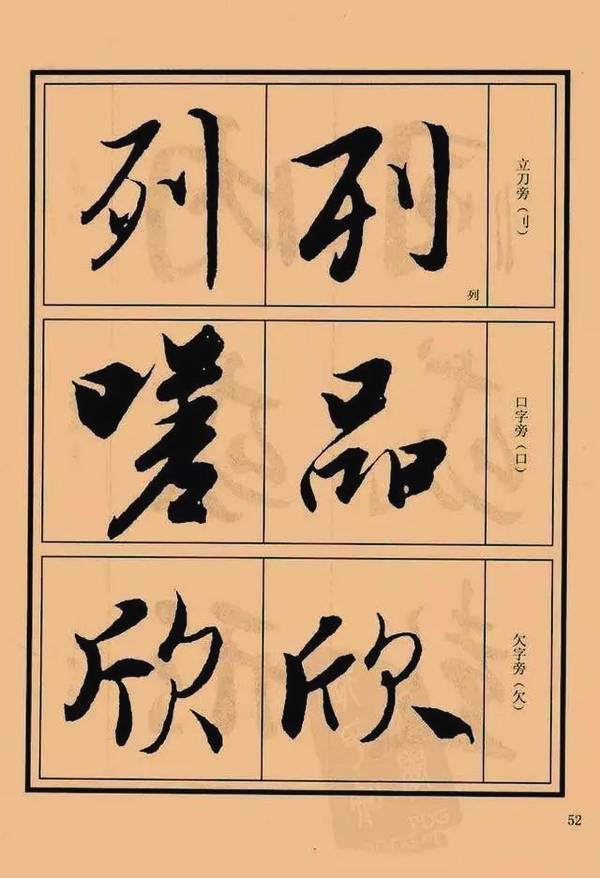 立刀旁（刂）
列
列
列
口字旁（口）
品
嗟
欠字旁（欠）
欣
欣
52